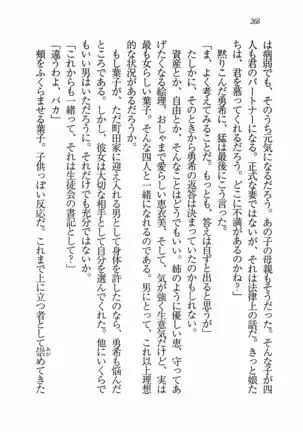 268
は病弱でも、そのうち元気になるだろう。あの子の母親もそうだった。そんな子が四
人も君のパートナーになる。正式な妻ではないが、それは法律上の話だ。きっと娘た
ちは、君を慕ってくれるだろう。どこに不満があるのかね？」
黙りこんだ勇希に、猛は最後にこう言った。
「ま、よく考えてみることだ。もっとも、答えは自ずと出ると思うが」
たしかに、そのときから勇希の返答は決まっていたのかもしれない。
資産とか、自由とか、そんなことはどうでもいい。姉のように優しい恵、守ってあ
げたくなる絵理、おしゃまで愛らしい恵衣美。そして、気が強く生意気だけど、実は
最も女らしい葉子。そんな四人と一緒になれるのである。男にとって、これ以上理想
的な状況があるだろうか。
もし葉子が、ただ町田家に迎え入れる男として身体を許したのなら、勇希も悩んだ
ことだろう。しかし、彼女は大切な相手として自分を選んでくれた。他にいくらで
もいい男はいただろうに。それだけでも充分ではないか。
「これからも一緒って、それは生徒会の書記として？」
「違うわよ、バカ」
頬をふくらませる葉子。子供っぽい反応だ。これまで上に立つ者として崇めてきた